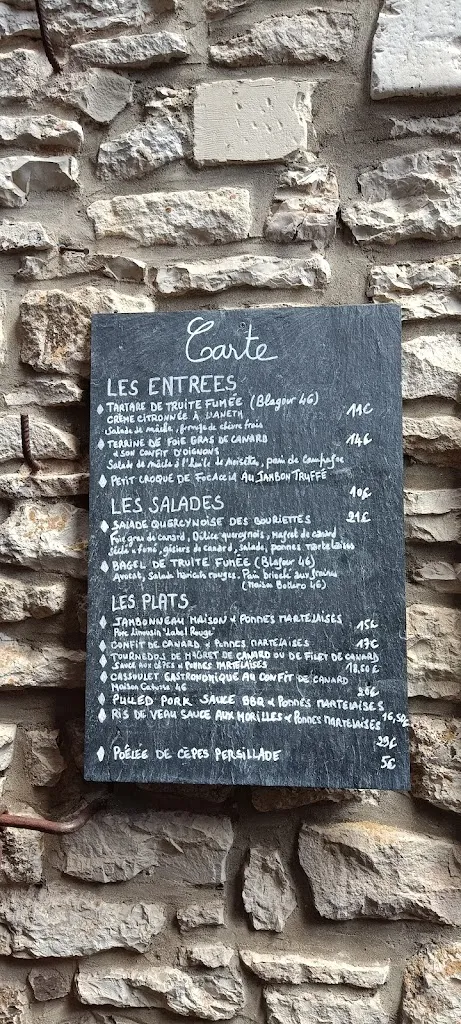 Carte
LES ENTREES
TARTARE DE TRUITE FUMÉE (Blagour 46)
CRÈME CITRONNÉE À L'ANETH 11€
Salade de mâche, fromage de chèvre frais
TERRINE DE FOIE GRAS DE CANARD 14€
& SON CONFIT D'OIGNONS
Salade de mâche à l'huile de noisette, pain de campagne
PETIT CROQUE DE FOCACCIA AU JAMBON TRUFFÉ
10€
LES SALADES
SALADE QUERCYNOISE DES BOURIETTES 21€
Foie gras de canard, Délice quercynois, Magret de canard
séché & fumé, gésiers de canard, salade, pommes martelaises
BAGEL DE TRUITE FUMÉE (Blagour 46)
Avocat, Salade haricots rouges, Pain brioché aux graines
(Maison Bottero 46)
LES PLATS
JAMBONNEAU MAISON & POMMES MARTELAISES
Porc Limousin "Label Rouge" 15€
CONFIT DE CANARD & POMMES MARTELAISES 17€
TOURNEDOS DE MAGRET DE CANARD OU DE FILET DE CANARD
SAUCE AUX CÈPES & POMMES MARTELAISES 18,50€
CASSOULET GASTRONOMIQUE AU CONFIT DE CANARD
Maison 46
PULLED PORK SAUCE BBQ & POMMES MARTELAISES
RIS DE VEAU SAUCE AUX MORILLES & POMMES MARTELAISES 16,50€
29€
POÊLÉE DE CÈPES PERSILLADE 5€